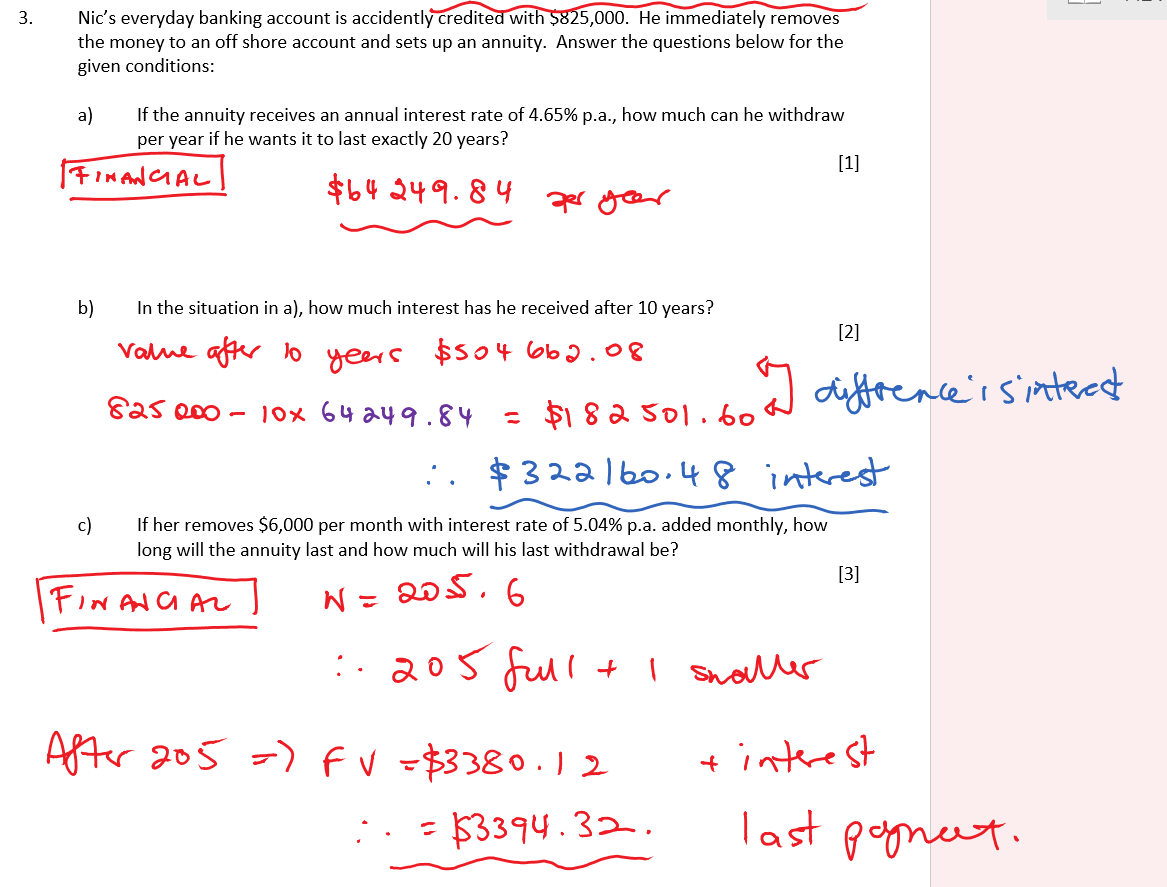 3. Nic’s everyday banking account is accidently credited with $825,000. He immediately removes
the money to an off shore account and sets up an annuity. Answer the questions below for the
given conditions:
a) If the annuity receives an annual interest rate of 4.65% p.a., how much can he withdraw
per year if he wants it to last exactly 20 years?
[1]
FINANCIAL
$64 249.84 per year
b) In the situation in a), how much interest has he received after 10 years?
[2]
Value after 10 years $504 662.08
825 000 - 10 x 64 249.84 = $182 501.60
difference is interest
∴ $322160.48 interest
c) If her removes $6,000 per month with interest rate of 5.04% p.a. added monthly, how
long will the annuity last and how much will his last withdrawal be?
[3]
FINANCIAL N = 205.6
∴ 205 full + 1 smaller
After 205 => FV = $3380.12 + interest
∴ = $3394.32. last payment.